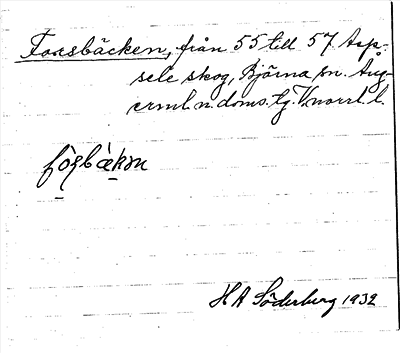 Forsbäcken, från 55 till 57 Asp-
sele skog, Björna sn. Ång-
erml. n. doms. tg. V.norrl. l.
HA Söderberg 1932